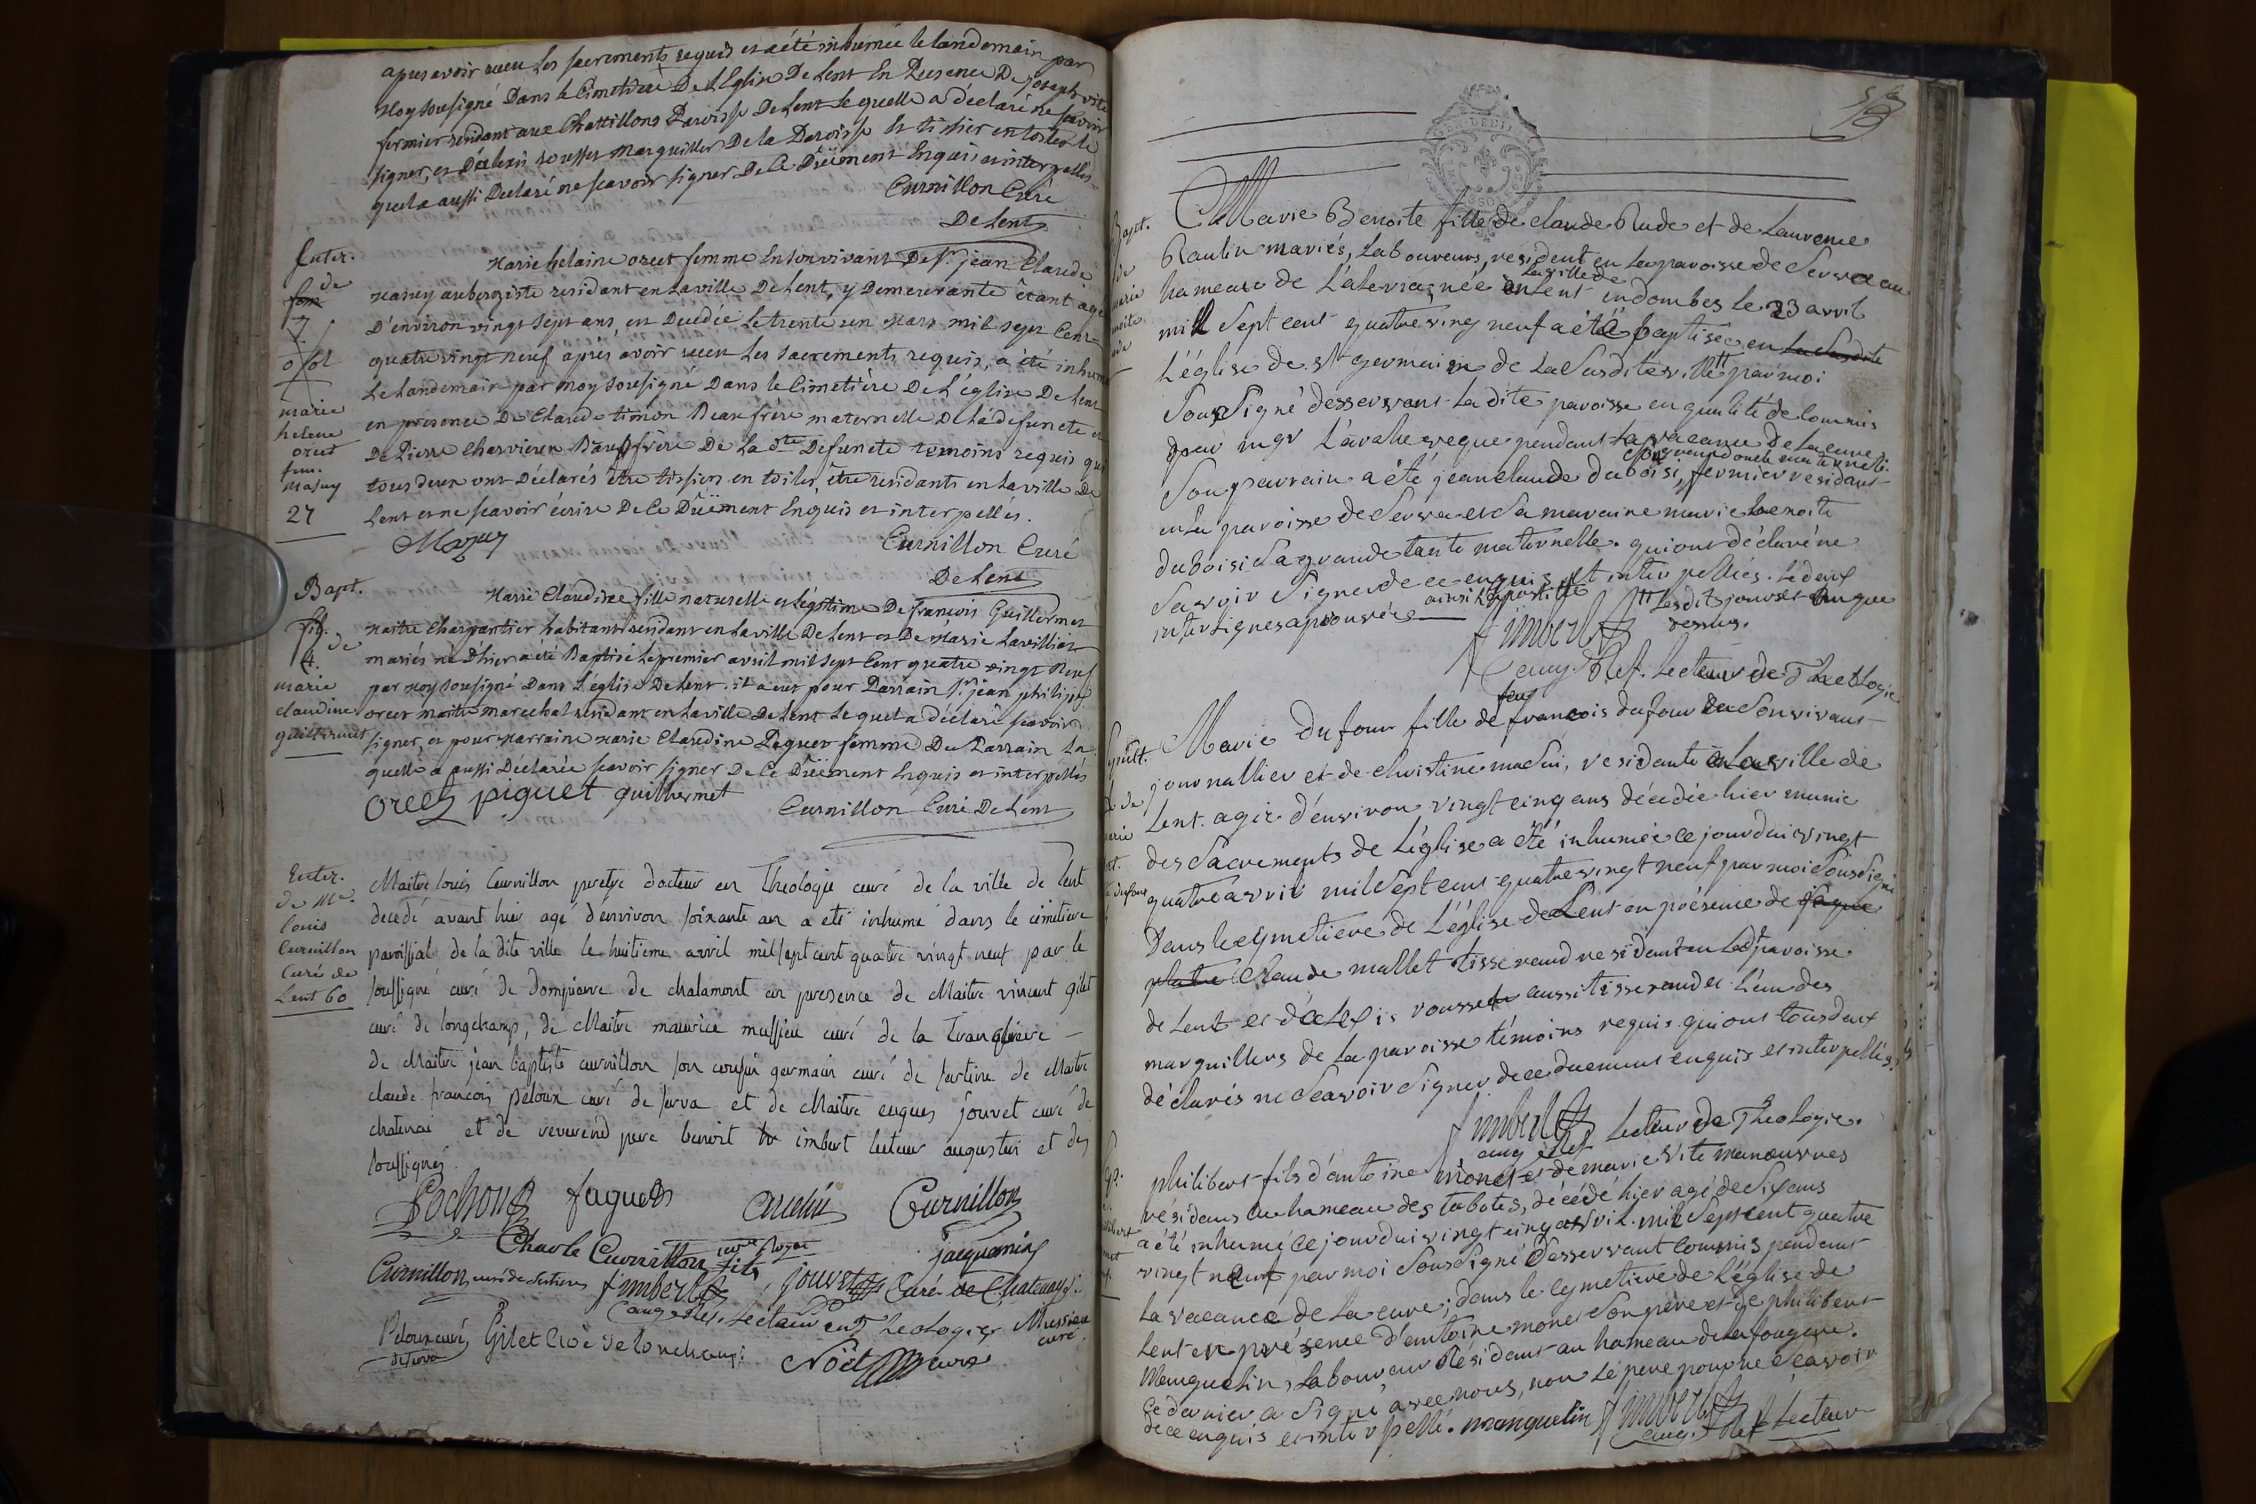 apres avoir receu les sacrements requis et a été inhumée le landemain par
Moy sousigné Dans le Cimetière De L'Eglise De Lent En Presence De Joseph vite
fermier residant aux Chattillons Paroisse De Lent Lequelle a déclaré ne scavoir
signer, et D'alexis rousset Marguiller De la Paroisse Et tissier en toiles le
quel a aussi Declaré ne scavoir signer De Ce Düëment Enquis et interpellés
Curnillon Curé
De Lent
Enter.
de
7.
marie
helene
orcet
fem.
mazuy
27
Marie helaine orcet femme En son vivant De Sr. jean Claude
Mazuy aubergiste residant en La ville De Lent, y Demeurante étant agé
D'environ vingt sept ans, est Decedée Le trente un Mars mil sept Cent
quatre vingt neuf après avoir receu Les sacrements requis, a été inhumé
Le Landemain par moy sousigné Dans le Cimetière De L'église De Lent
en présence De Claude timon Beau frère maternelle De la défuncte et
De Pierre Charvieux Beau frère De La dte Defuncte témoins requis qui
tous deux ont Déclarés être tissiers en toiles, être residants en La ville De
Lent et ne scavoir écrire De Ce Düëment Enquis et interpellés.
Mazuy Curnillon Curé
De Lent
Bapt.
de
4.
marie
claudine
guillermet
Marie Claudine fille naturelle et Légitime De françois Guillermet
Maitre Charpantier habitant residant en La ville De Lent et De Marie Lavillion
mariés né D'hier a été Baptisé Le premier avril mil sept Cent quatre vingt Neuf
par Moy sousigné Dans L'église De Lent. il a eut pour Parrain Sr. jean philippe
orcet maitre marechal residant en La ville De Lent Le quel a déclaré scavoir
signer, et pour Marraine Marie Claudine Piquet femme Du Parrain La
quelle a aussi Déclarée scavoir signer De Ce Düëment Enquis et interpellés
orcet piquet guillermet Curnillon Curé De Lent
Enter.
de Me.
louis
Curnillon
Curé de
Lent 60
Maitre louis Curnillon pretre docteur en Theologie curé de la ville de lent
decedé avant hier agé d'environ soixante an a eté inhumé dans le cimetiere
paroissial de la dite ville le huitieme avril mil sept cent quatre vingt neuf par le
soussigné curé de dompierre de chalamont en presence de Maitre vincent gilet
curé de longchamp, de Maitre maurice mussieu curé de la Tranqliere –
de Maitre jean baptiste curnillon son cousin germain curé de sertine de Maitre
claude francois peloux curé de serva et de Maitre eugues jouvet curé de
chatenai et de reverend pere benoit imbert lecteur augustin et des
soussignés.
Pochon faguet Curnillon
Charle Curnillon fils jacquemin
Curnillon curé de Sertines f imbert jouvet Curé de Chatenay
aug. Ref. Lecteur en theologie Mussieu
curé
Peloux curé Gilet Curé de lonchamp Noël
de Serva
Bapt.
Marie Benoite fille de claude Rude et de Laurence
Raulin mariés, Laboureurs, resident en La paroisse de Serva au
hameau de L'aleriaz, née en La ville de Lent en dombes le 23 avril
mill Sept cent quatre ving neuf a été baptisée en La Susdite
L'église de st germain de La Susdite ville par moi
Sous Signé desservant La dite paroisse en qualité de Commis
par mgr L'archeveque pendant La vacance de La cure
Son parrain a été jean claude duboisi, son grand oncle maternel, fermier residant
en La paroisse de Serva et Sa maraine marie benoite
duboisi Sa grande tante maternelle. qui ont déclaré ne
Savoir Signer de ce enquis et inter pellés.
inter lignes aprouvée ainsi L'apostille
f imbert dessus.
aug. Ref. Lecteur de Theologie
Marie Dufour fille de feu francois dufour en Son vivant
journallier et de christine masui, residante en La ville de
Lent. agée d'environ vingt cinq ans décédée hier munie
des Sacrements de L'église a été inhumée ce jourdui vingt
quatre avril mil Sept cent quatre vingt neuf par moi Sous Signé
Dans le cymetiere de L'église de Lent en présence de
Claude mallet tisserand residant en La dte paroisse
de Lent et d'alexis rousset aussi tisserand et L'un des
marguillers de La paroisse témoins requis qui ont tous deux
déclarés ne Scavoir Signer de ce duement enquis et interpellés
f imbert Lecteur de Theologie.
aug ref
philibert fils d'antoine monet et de marie Vite manoeuvres
résidans au hameau des tabotes, décédé hier agé de Six ans
a été inhumé ce jourdui vingt cinq avril mil Sept cent quatre
vingt neuf par moi Sous Signé desservant Commis pendant
La vacance de La cure; dans le cymetiere de L'église de
Lent en présence d'antoine monet Son père et de philibert
Manguelin, Laboureur Résidant au hameau de La fougere.
Ce dernier a Signé avec nous, non Le pere pour ne Scavoir
de ce enquis et inter pellé. manguelin f imbert
aug. Ref Lecteur